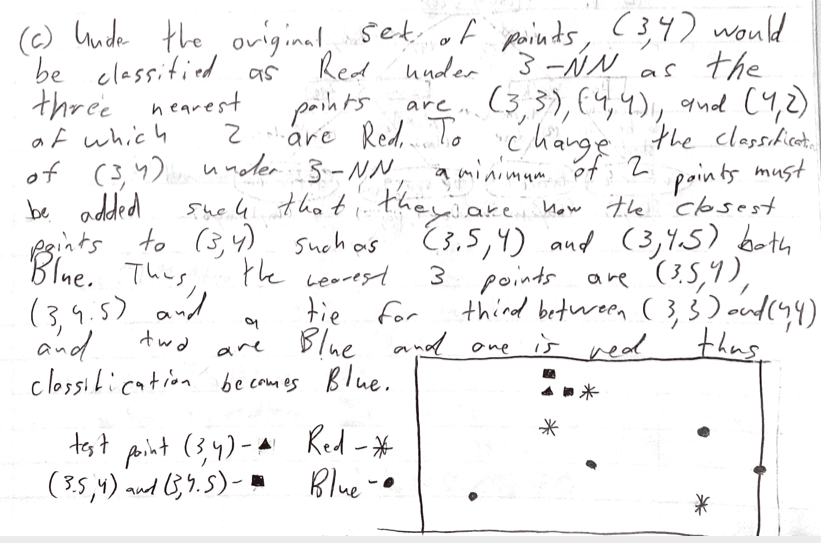 (c) Under the original set of points, (3,4) would
be classified as Red under 3-NN as the
three nearest points are (3,3), (4,4), and (4,2)
of which 2 are Red. To change the classificat.
of (3,4) under 3-NN, a minimum of 2 points must
be added such that they are now the closest
points to (3,4) such as (3.5,4) and (3,4.5) both
Blue. Thus, the nearest 3 points are (3.5,4),
(3,4.5) and a tie for third between (3,3) and (4,4)
and two are Blue and one is red thus
classification becomes Blue.
test point (3,4)-▲ Red -*
(3.5,4) and (3,4.5)-■ Blue -●